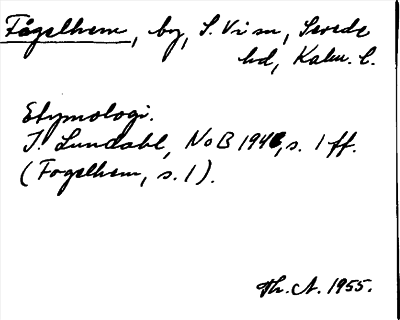 Fågelhem, by, S. Vi sn, Sevede
hd, Kalm. l.
Etymologi.
I. Lundahl, NoB 1946, s. 1 ff.
(Fogelhem, s. 1).
Th. A. 1955.